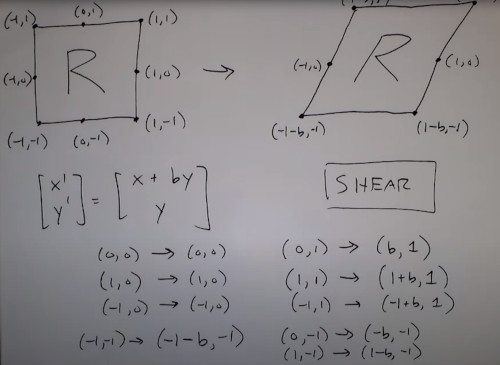 (-1,1) (0,1) (1,1)
(-1,0) R (1,0) → (-1,0) R (1,0)
(-1,-1) (0,-1) (1,-1) (-1-b,-1) (1-b,-1)
[x' y'] = [x + by y]
SHEAR
(0,0) → (0,0) (0,1) → (b,1)
(1,0) → (1,0) (1,1) → (1+b,1)
(-1,0) → (-1,0) (-1,1) → (-1+b,1)
(-1,-1) → (-1-b,-1) (0,-1) → (-b,-1)
(1,-1) → (1-b,-1)